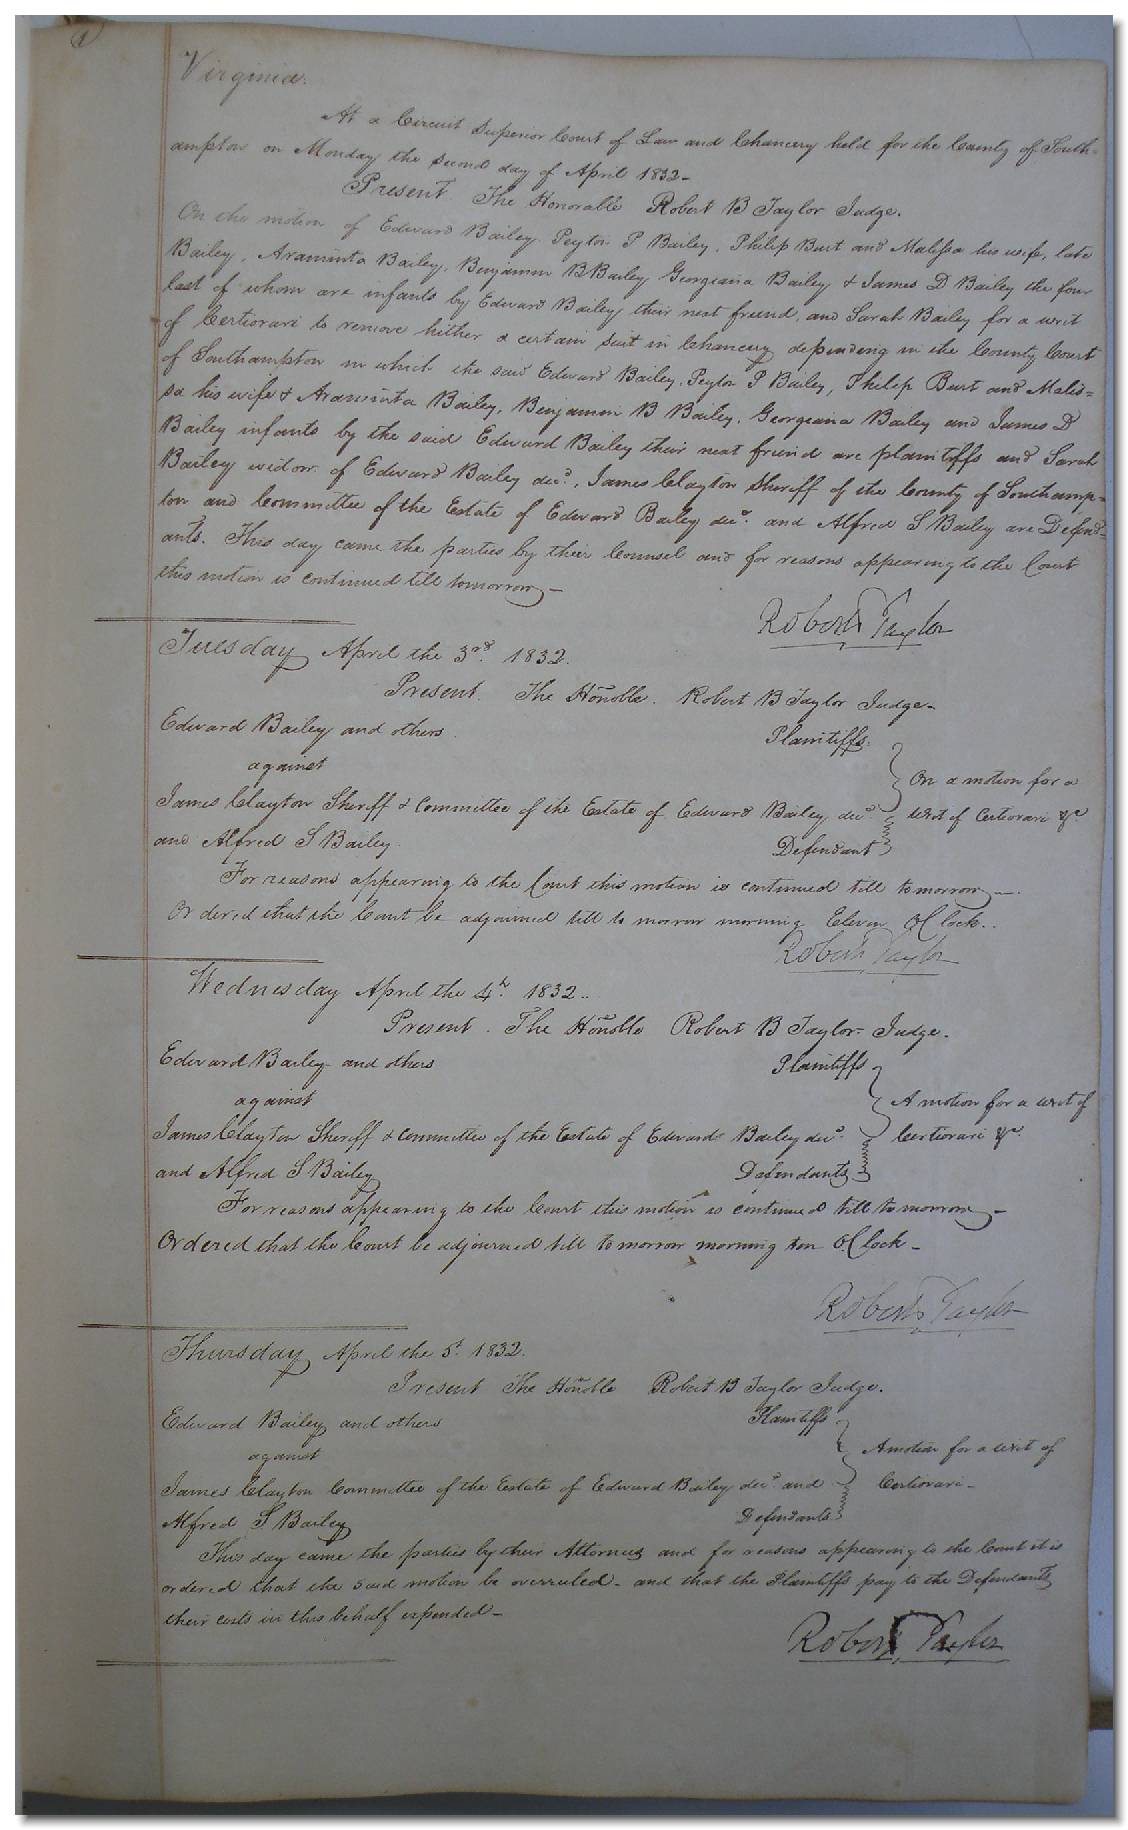 1
Virginia.
At a Circuit Superior Court of Law and Chancery held for the County of South-
ampton on Monday the second day of April 1832-
Present The Honorable Robert B Taylor Judge.
On the motion of Edward Bailey Peyton P Bailey, Philip Burt and Malissa his wife, late
Bailey, Araminta Bailey, Benjamin B Bailey Georgeana Bailey & James D Bailey the four
last of whom are infants by Edward Bailey their next friend, and Sarah Bailey for a writ
of Certiorari to remove hither a certain suit in Chancery depending in the County Court
of Southampton in which the said Edward Bailey, Peyton P Bailey, Philip Burt and Malis=
sa his wife & Araminta Bailey, Benjamin B Bailey, Georgeana Bailey and James D
Bailey infants by the said Edward Bailey their next friend are plaintiffs and Sarah
Bailey widow of Edward Bailey decd., James Clayton Sheriff of the County of Southamp=
ton and Committee of the Estate of Edward Bailey decd. and Alfred S Bailey are Defend-
ants. This day came the parties by their Counsel and for reasons appearing to the Court
this motion is continued till tomorrow-
Robert Taylor
Tuesday April the 3rd. 1832.
Present. The Honoble. Robert B Taylor Judge-
Edward Bailey and others. Plaintiffs.
against
On a motion for a
James Clayton Sheriff & Committee of the Estate of Edward Bailey decd writ of Certiorari &c
and Alfred S Bailey. Defendant
For reasons appearing to the Court this motion is continued till tomorrow-.
Ordered that the Court be adjourned till to morrow morning Eleven OClock..
Robert Taylor
Wednesday April the 4th. 1832..
Present. The Honoble Robert B Taylor- Judge.
Edward Bailey and others Plaintiffs
against A motion for a writ of
James Clayton Sheriff & Committee of the Estate of Edward Bailey decd. Certiorari &c.
and Alfred S Bailey Defendants
For reasons appearing to the Court this motion is continued till tomorrow-
Ordered that the Court be adjourned till to morrow morning ten OClock-
Robert Taylor
Thursday April the 5th. 1832.
Present The Honoble Robert B Taylor Judge.
Edward Bailey and others Plaintiffs
against A motion for a writ of
James Clayton Committee of the Estate of Edward Bailey decd. and Certiorari-
Alfred S Bailey Defendants
This day came the parties by their Attorneys and for reasons appearing to the Court it is
ordered that the said motion be overruled- and that the Plaintiffs pay to the Defendants
their costs in this behalf expended-
Robert Taylor